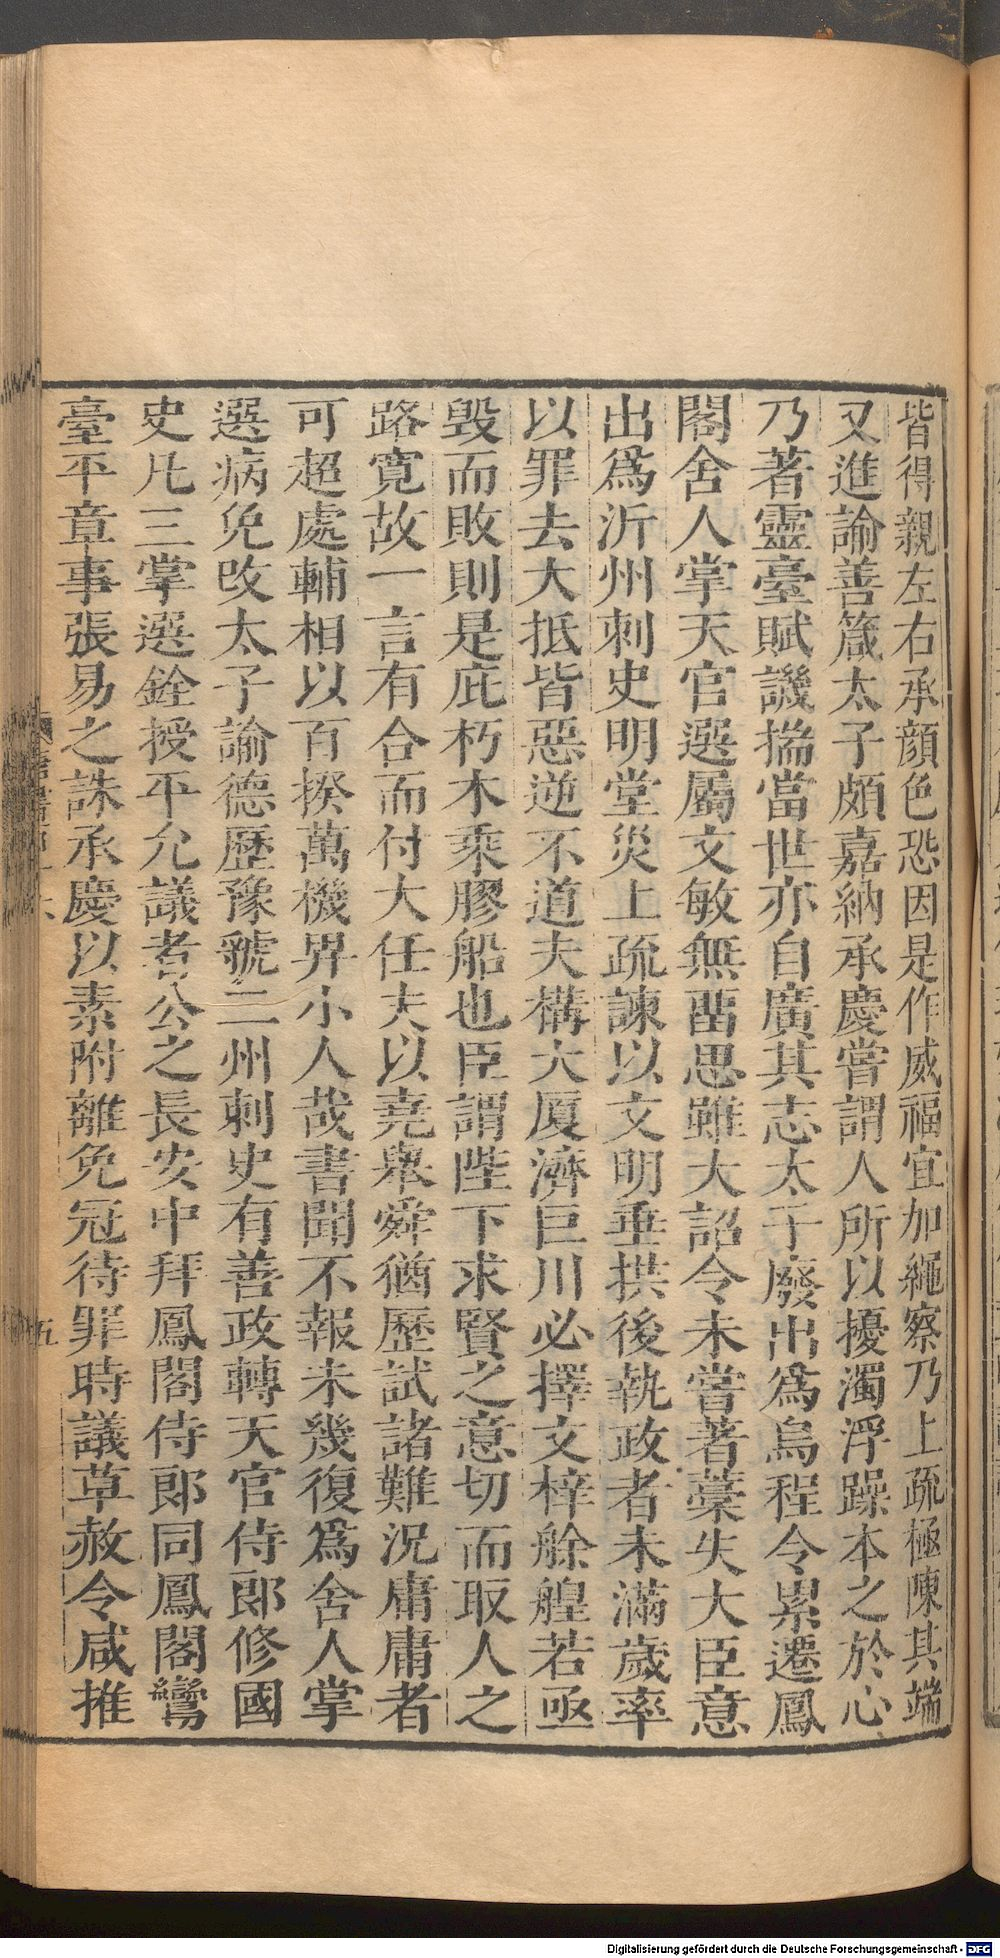 皆得親左右承顔色恐因是作威福宜加繩察乃上疏極陳其端
又進諭善箴太子頗嘉納承慶嘗謂人所以擾濁浮躁本之於心
乃著靈臺賦譏揣當世亦自廣其志太子廢出爲烏程令累遷鳳
閣舍人掌天官選屬文敏無畱思雖大詔令未嘗著藁失大臣意
出爲沂州刺史明堂災上疏諫以文明垂拱後執政者未滿歲率
以罪去大抵皆惡逆不道夫構大厦濟巨川必擇文梓艅艎若亟
毁而敗則是庇朽木乘膠船也臣謂陛下求賢之意切而取人之
路寛故一言有合而付大任夫以堯舉舜猶歷試諸難況庸庸者
可超處輔相以百揆萬機畀小人哉書聞不報未幾復爲舍人掌
選病免改太子諭德歷豫虢二州刺史有善政轉天官侍郎修國
史凡三掌選銓授平允議者公之長安中拜鳳閣侍郎同鳳閣鸞
臺平章事張易之誅承慶以素附離免冠待罪時議草赦令咸推
五
Digitalisierung gefördert durch die Deutsche Forschungsgemeinschaft - DFG